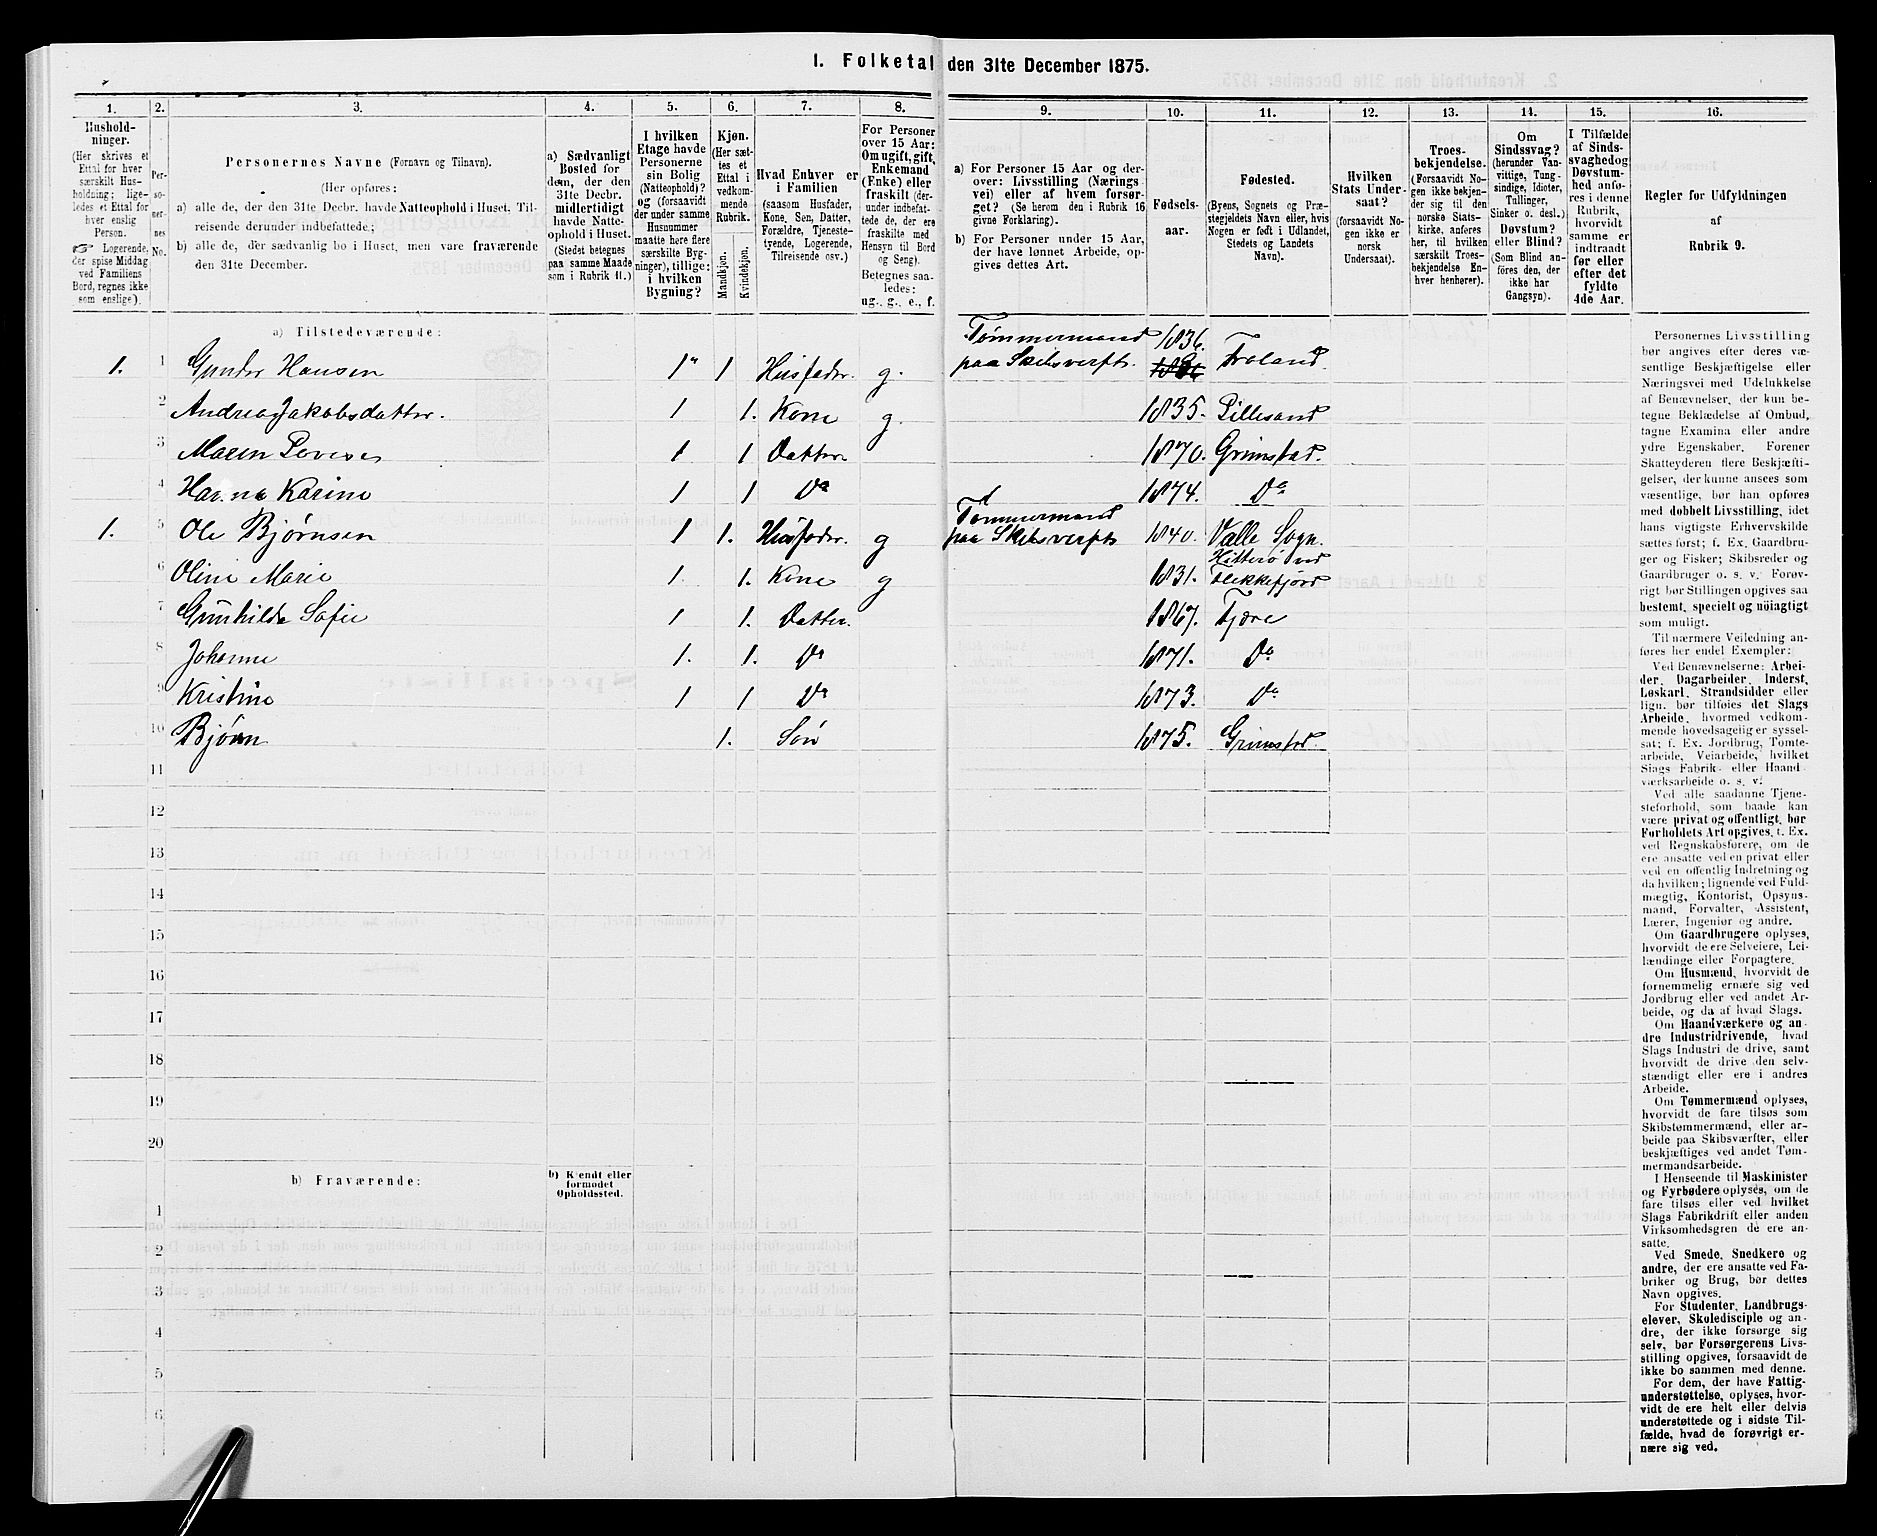 1. Folketal den 31te December 1875.
1. 2. 3. 4. 5. 6. 7. 8. 9. 10. 11. 12. 13. 14. 15. 16.
Hushold-
ninger.
(Her skrives et
Ettal for hver
særskilt Hus-
holdning; lige-
ledes et Ettal for
hver enslig
Person.
☞ Logerende,
der spise Middag
ved Familiens
Bord, regnes ikke
som enslige).
Per-
so-
ner-
nes
No.
Personernes Navne (Fornavn og Tilnavn).
(Her opføres:
a) alle de, der den 31te Decbr. havde Natteophold i Huset, Til-
reisende derunder indbefattede;
b) alle de, der sædvanlig bo i Huset, men vare fraværende
den 31te December.
a) Sædvanligt
Bosted for
dem, der den
31te Decbr.
midlertidigt
havde Natte-
ophold i Huset.
(Stedet betegnes
paa samme Maade
som i Rubrik 11.)
I hvilken
Etage havde
Personerne
sin Bolig
(Natteophold)?
og (forsaavidt
der under samme
Husnummer
maatte høre flere
særskilte Byg-
ninger), tillige:
i hvilken
Bygning?
Kjøn.
(Her sæt-
tes et
Ettal i
vedkom-
mende
Rubrik.
Mandkjøn.
Kvindekjøn.
Hvad Enhver er
i Familien
(saasom Husfader,
Kone, Søn, Datter,
Forældre, Tjeneste-
tyende, Logerende,
Tilreisende osv.)
For Personer
over 15 Aar:
Om ugift, gift,
Enkemand
(Enke) eller
fraskilt (der-
under indbefat-
tede de, der ere
fraskilte med
Hensyn til Bord
og Seng).
Betegnes saa-
ledes:
ug., g., e., f.
a) For Personer 15 Aar og der-
over: Livsstilling (Nærings
vei) eller af hvem forsør-
get? (Se herom den i Rubrik 16
givne Forklaring).
b) For Personer under 15 Aar,
der have lønnet Arbeide, op-
gives dettes Art.
Fødsels-
aar.
Fødested.
(Byens, Sognets og Præ-
stegjeldets Navn eller, hvis
Nogen er født i Udlandet,
Stedets og Landets
Navn).
Hvilken
Stats Under-
saat?
(forsaavidt No-
gen ikke er
norsk
Undersaat).
Troes-
bekjendelse.
(Forsaavidt No-
gen ikke bekjen-
der sig til den
norske Stats-
kirke, anføres
her, til hvilken
særskilt Troes-
bekjendelse En-
hver henhører).
Om
Sindssvag?
(herunder Van-
vittige, Tung-
sindige, Idioter,
Tullinger,
Sinker o. desl.)
Døvstum?
eller Blind?
(Som Blind an-
føres den, der
ikke har
Gangsyn).
I Tilfælde
af Sinds-
svaghed og
Døvstum-
hed anfø-
res i denne
Rubrik,
hvorvidt
samme er
indtraadt
før eller
efter det
fyldte
4de Aar.
Regler for Udfyldningen
af
Rubrik 9.
a) Tilstedeværende:
1. 1 Gunder Hansen 1 1 Husfader g. Tømmermand paa Skibsverft. 1836. Froland.
2 Andrea Jakobsdatter. 1 1. Kone g. 1835. Lillesand
3 Maren Lovise 1 1 Datter 1870. Grimstad.
4 Hanna Karine 1 1 Do 1874. Do
1. 5 Ole Bjørnsen 1 1. Husfader. g Tømmermand paa Skibsverft 1840. Valle Sogn.
6 Oline Marie 1. 1. Kone g 1831. Hitterø ved Flekkefjord
7 Gunhilde Sofie 1 1. Datter. 1867. Fjære
8 Johanne 1. 1. Do 1871. Do
9 Kristine 1 1 Do 1873. Do
10 Bjørn 1. Søn 1875. Grimstad.
11
12
13
14
15
16
17
18
19
20
b) Fraværende:
b) Kjendt eller
formodet
Opholdssted.
1
2
3
4
5
6
Personernes Livsstilling
bør angives efter deres væ-
sentlige Beskjæftigelse eller
Næringsvei med Udelukkelse
af Benævnelser, der kun be-
tegne Beklædelse af Ombud,
tagne Examina eller andre
ydre Egenskaber. Forener
Skatteyderen flere Beskjæfti-
gelser, der kunne ansees som
væsentlige, bør han opføres
med dobbelt Livsstilling, idet
hans vigtigste Erhvervskilde
sættes først; f. Ex. Gaardbru-
ger og Fisker; Skibsreder og
Gaardbruger o. s. v. Forøv-
rigt bør Stillingen opgives saa
bestemt, specielt og nøiagtigt
som muligt.
Til nærmere Veiledning an-
føres her endel Exempler:
Ved Benævnelserne: Arbei-
der, Dagarbeider, Inderst,
Løskarl, Strandsidder eller
lign. bør tilføies det Slags
Arbeide, hvormed vedkom-
mende hovedsagelig er syssel-
sat; f. Ex. Jordbrug, Tomte-
arbeide, Veiarbeide, hvilket
Slags Fabrik- eller Haand-
værksarbeide o. s. v.
Ved alle saadanne Tjene-
steforhold, som baade kan
være privat og offentligt, bør
Forholdets Art opgives, t. Ex.
ved Regnskabsførere, om de
ere ansatte ved en privat eller
ved en offentlig Indretning og
da hvilken; lignende ved Fuld-
mægtig, Kontorist, Opsyns-
mand, Forvalter, Assistent,
Lærer, Ingeniør og andre.
Om Gaardbrugere oplyses,
hvorvidt de ere Selveiere, Lei-
lændinge eller Forpagtere.
Om Husmænd, hvorvidt de
fornemmelig ernære sig ved
Jordbrug eller ved andet Ar-
beide, og da af hvad Slags.
Om Haandværkere og an-
dre Industridrivende, hvad
Slags Industri de drive, samt
hvorvidt de drive den selv-
stændigt eller ere i andres
Arbeide.
Om Tømmermænd oplyses,
hvorvidt de fare tilsøs som
Skibstømmermænd, eller ar-
beide paa Skibsværfter, eller
beskjæftiges ved andet Tøm-
mermandsarbeide.
I Henseende til Maskinister
og Fyrbødere oplyses, om de
fare tilsøs eller ved hvilket
Slags Fabrikdrift eller anden
Virksomhedsgren de ere an-
satte.
Ved Smede, Snedkere og
andre, der ere ansatte ved Fa-
briker og Brug, bør dettes
Navn opgives.
For Studenter, Landbrugs-
elever, Skoledisciple og an-
dre, der ikke forsørge sig
selv, bør Forsørgerens Livs-
stilling opgives, forsaavidt de
ikke bo sammen med denne.
For dem, der have Fattig-
understøttelse, oplyses, hvor-
vidt de ere helt eller delvis
understøttede og i sidste Til-
fælde, hvad de forøvrigt er-
nære sig ved.